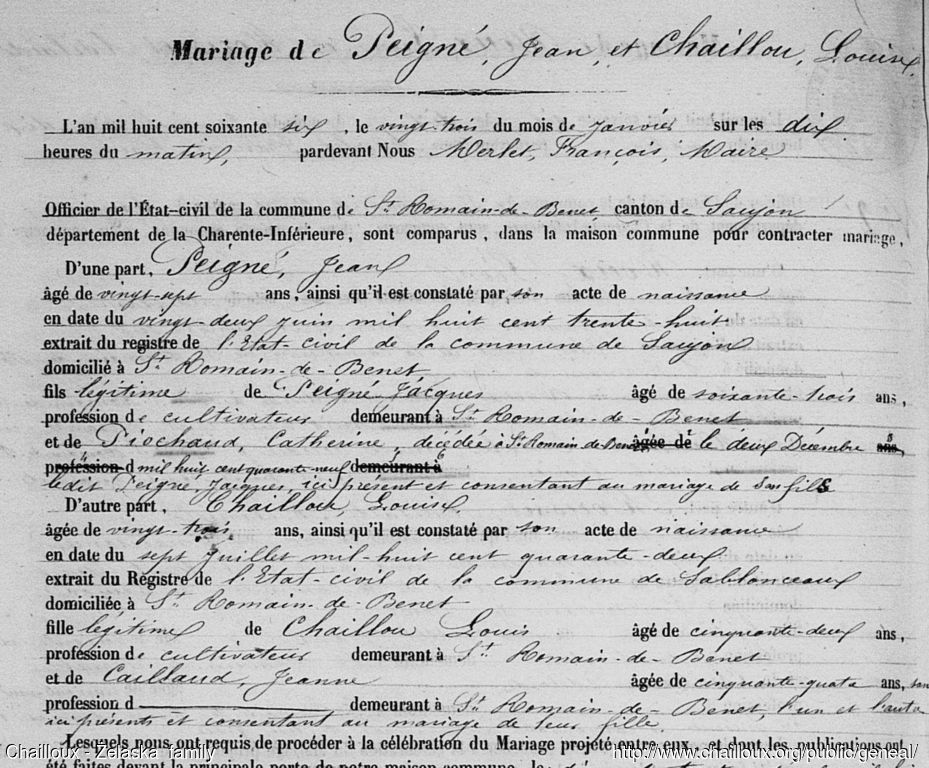 Mariage de Peigné, Jean, et Chaillou, Louise,
L'an mil huit cent soixante six, le vingt-trois du mois de Janvier sur les dix
heures du matin, pardevant Nous Merlet, François, Maire
Officier de l'État-civil de la commune de St Romain-de-Benet, canton de Saujon
département de la Charente-Inférieure, sont comparus, dans la maison commune pour contracter mariage,
D'une part, Peigné, Jean
âgé de vingt-sept ans, ainsi qu'il est constaté par son acte de naissance
en date du vingt-deux juin mil huit cent trente-huit
extrait du registre de l'Etat-civil de la commune de Saujon
domicilié à St Romain-de-Benet
fils légitime de Peigné Jacques âgé de soixante-trois ans,
profession de cultivateur demeurant à St Romain-de-Benet
et de Piochaud, Catherine, décédée à St Romain-de-Benet âgée de le deux Décembre ans,
profession d mil huit cent quarante-neuf demeurant à
ledit Peigné, Jacques, ici présent et consentant au mariage de son fils
D'autre part, Chaillou, Louise,
âgée de vingt-trois ans, ainsi qu'il est constaté par son acte de naissance
en date du sept Juillet mil-huit cent quarante-deux
extrait du Régistre de l'Etat-civil de la commune de Sablonceaux
domiciliée à St Romain-de-Benet
fille légitime de Chaillou Louis âgé de cinquante-deux ans,
profession de cultivateur demeurant à St Romain-de-Benet
et de Caillaud, Jeanne âgée de cinquante-quatre ans, son
profession d demeurant à St Romain-de-Benet, l'un et l'autre
ici présents et consentant au mariage de leur fille
Lesquels nous ont requis de procéder à la célébration du Mariage projeté entre eux, et dont les publications ont
été faites devant la principale porte de notre maison commune,
Chailloux - Zelaska family http://www.chailloux.org/public/geneal/